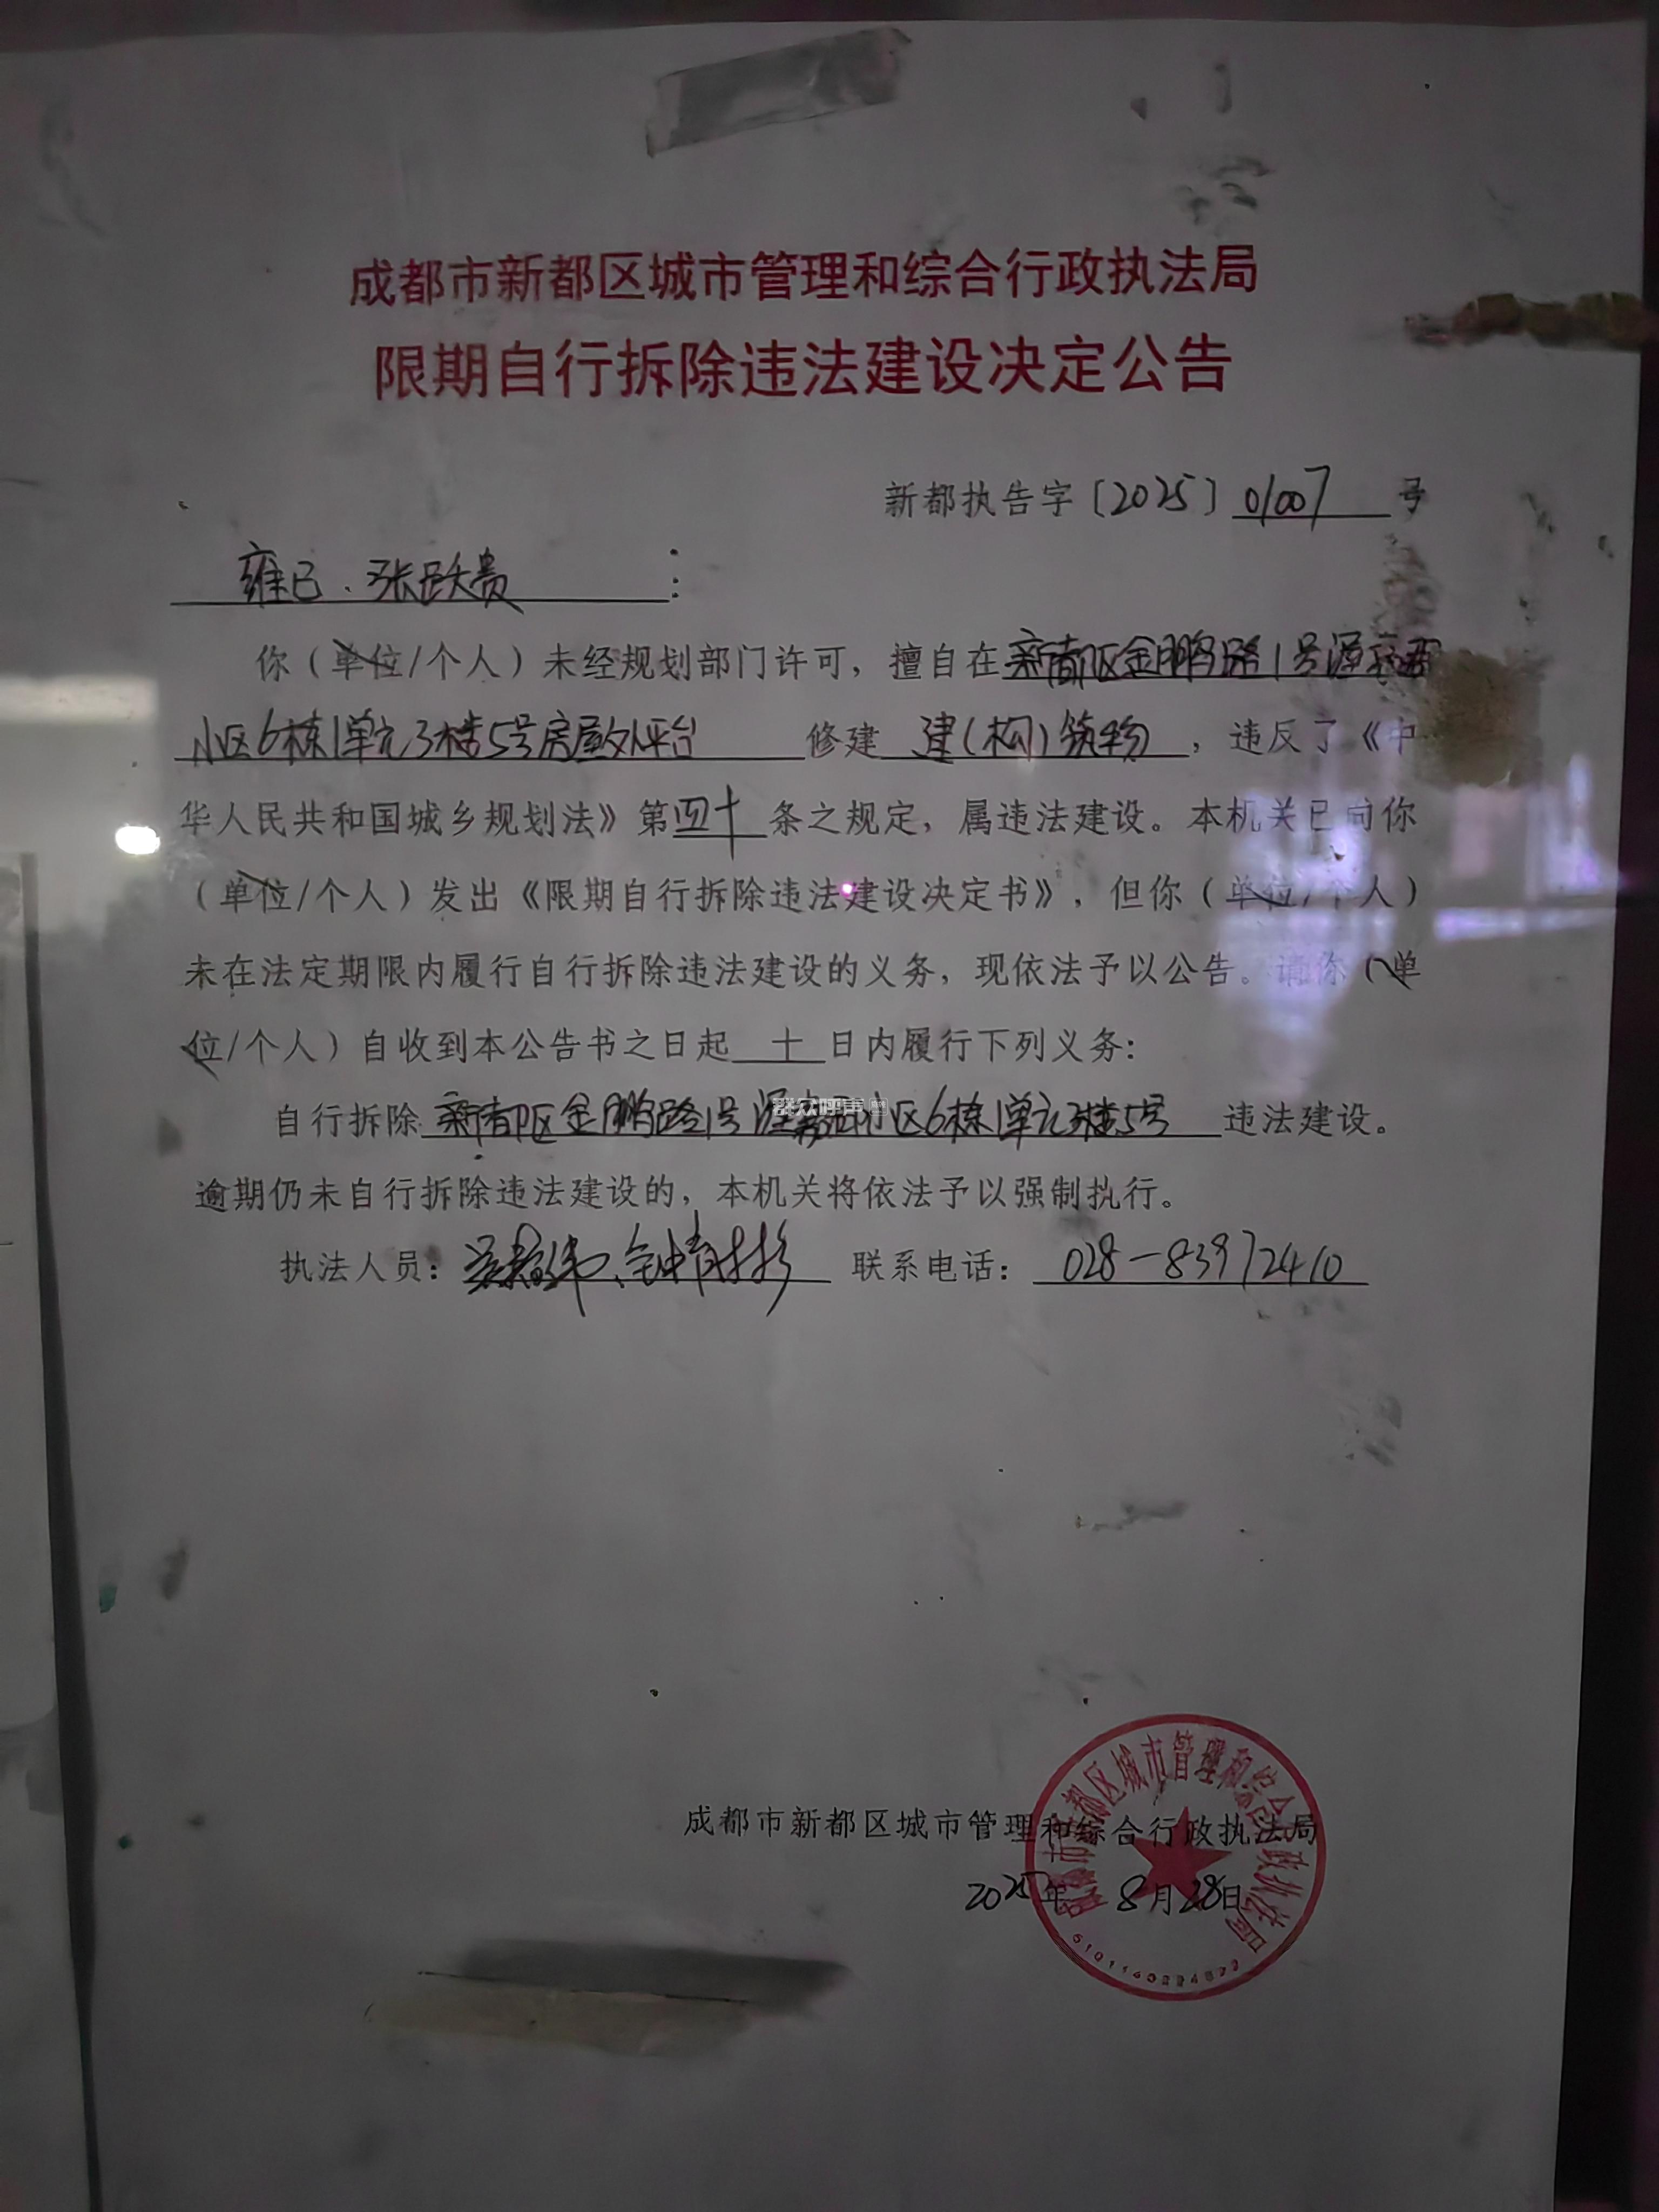 成都市新都区城市管理和综合行政执法局
限期自行拆除违法建设决定公告
新都执告字〔2025〕01007号
雍已、张跃贵：
你（单位/个人）未经规划部门许可，擅自在新都区金鹏路1号
小区6栋1单元3楼5号房屋外平台修建建(构)筑物，违反了《中
华人民共和国城乡规划法》第四十条之规定，属违法建设。本机关已向你
（单位/个人）发出《限期自行拆除违法建设决定书》，但你（单位/个人）
未在法定期限内履行自行拆除违法建设的义务，现依法予以公告。请你（单
位/个人）自收到本公告书之日起十日内履行下列义务：
自行拆除新都区金鹏路1号小区6栋1单元3楼5号违法建设。
群众呼声
逾期仍未自行拆除违法建设的，本机关将依法予以强制执行。
执法人员： 联系电话：028-83972410
成都市新都区城市管理和综合行政执法局
2025年8月28日
成都市新都区城市管理和综合行政执法局